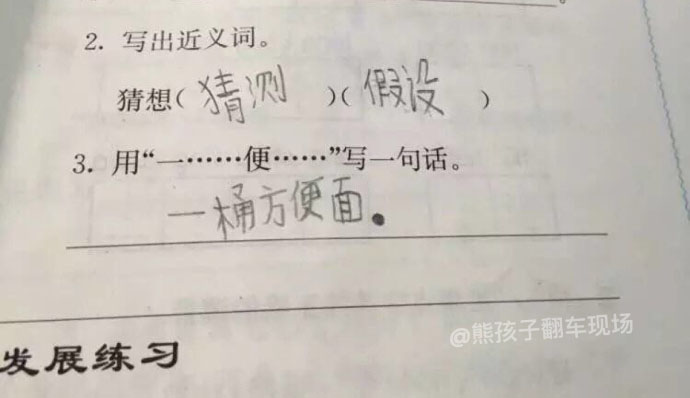 2. 写出近义词。
猜想( 猜测 )( 假设 )
3. 用“一……便……”写一句话。
一桶方便面。
@熊孩子翻车现场
发展练习